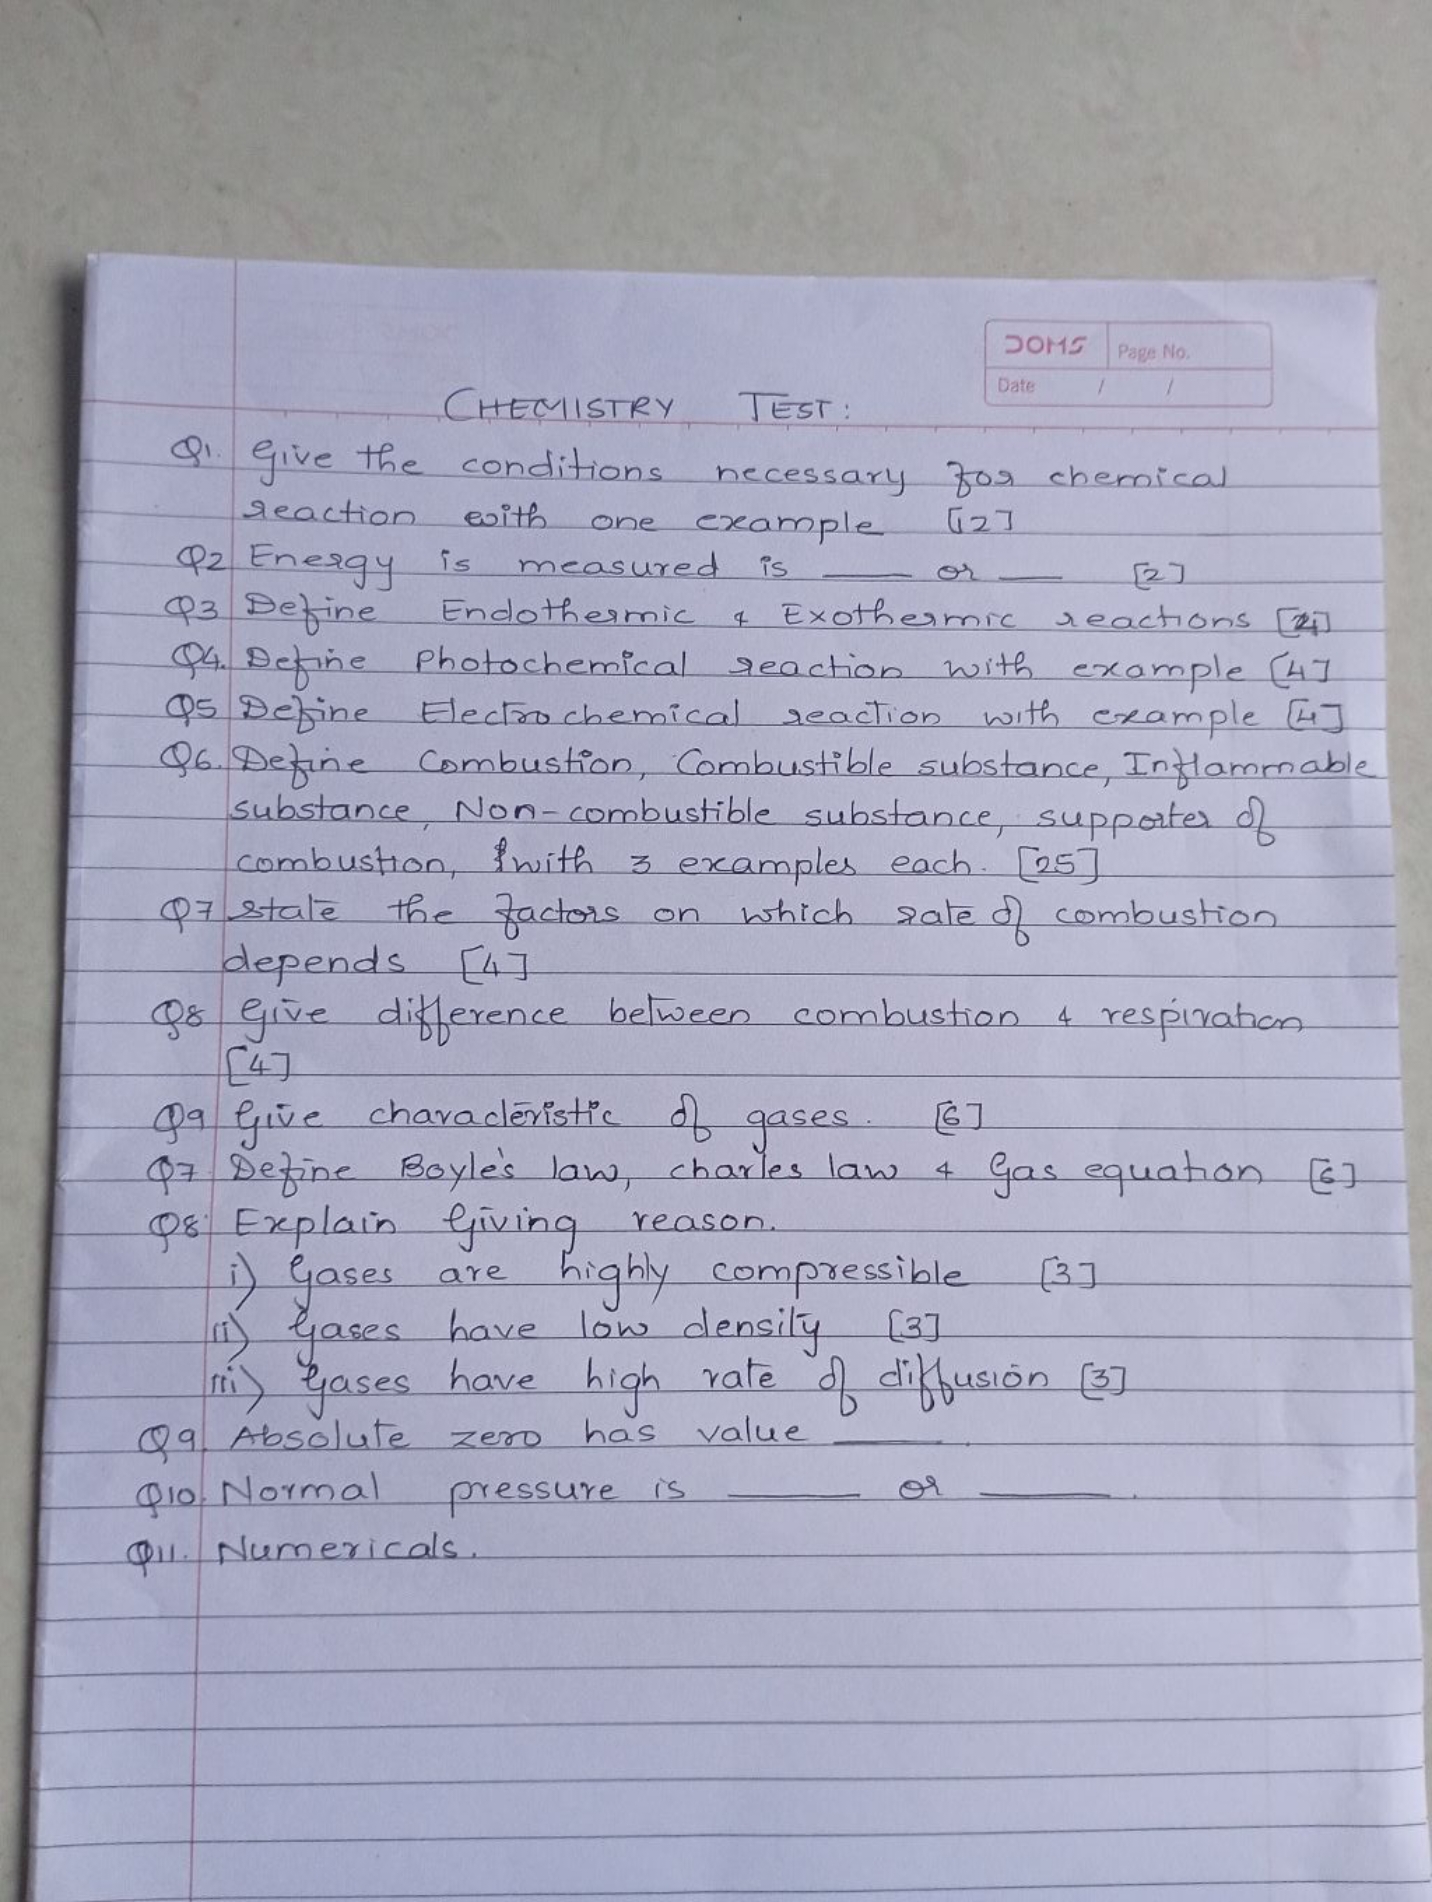 DOMS Page No.
Date / /
CHEMISTRY TEST:
Q1. Give the conditions necessary for chemical
reaction with one example [12]
Q2 Energy is measured is ___ or ___ [2]
Q3 Define Endothermic & Exothermic reactions [4]
Q4. Define Photochemical reaction with example [4]
Q5 Define Electrochemical reaction with example [4]
Q6. Define Combustion, Combustible substance, Inflammable
substance, Non-combustible substance, supporter of
combustion, with 3 examples each. [25]
Q7 state the factors on which rate of combustion
depends [4]
Q8 Give difference between combustion & respiration
[4]
Q9 Give characteristic of gases. [6]
Q7 Define Boyle's law, charles law & Gas equation [6]
Q8 Explain Giving reason.
i) Gases are highly compressible [3]
ii) Gases have low density [3]
iii) Gases have high rate of diffusion [3]
Q9. Absolute zero has value ___.
Q10. Normal pressure is ___ or ___.
Q11. Numericals.